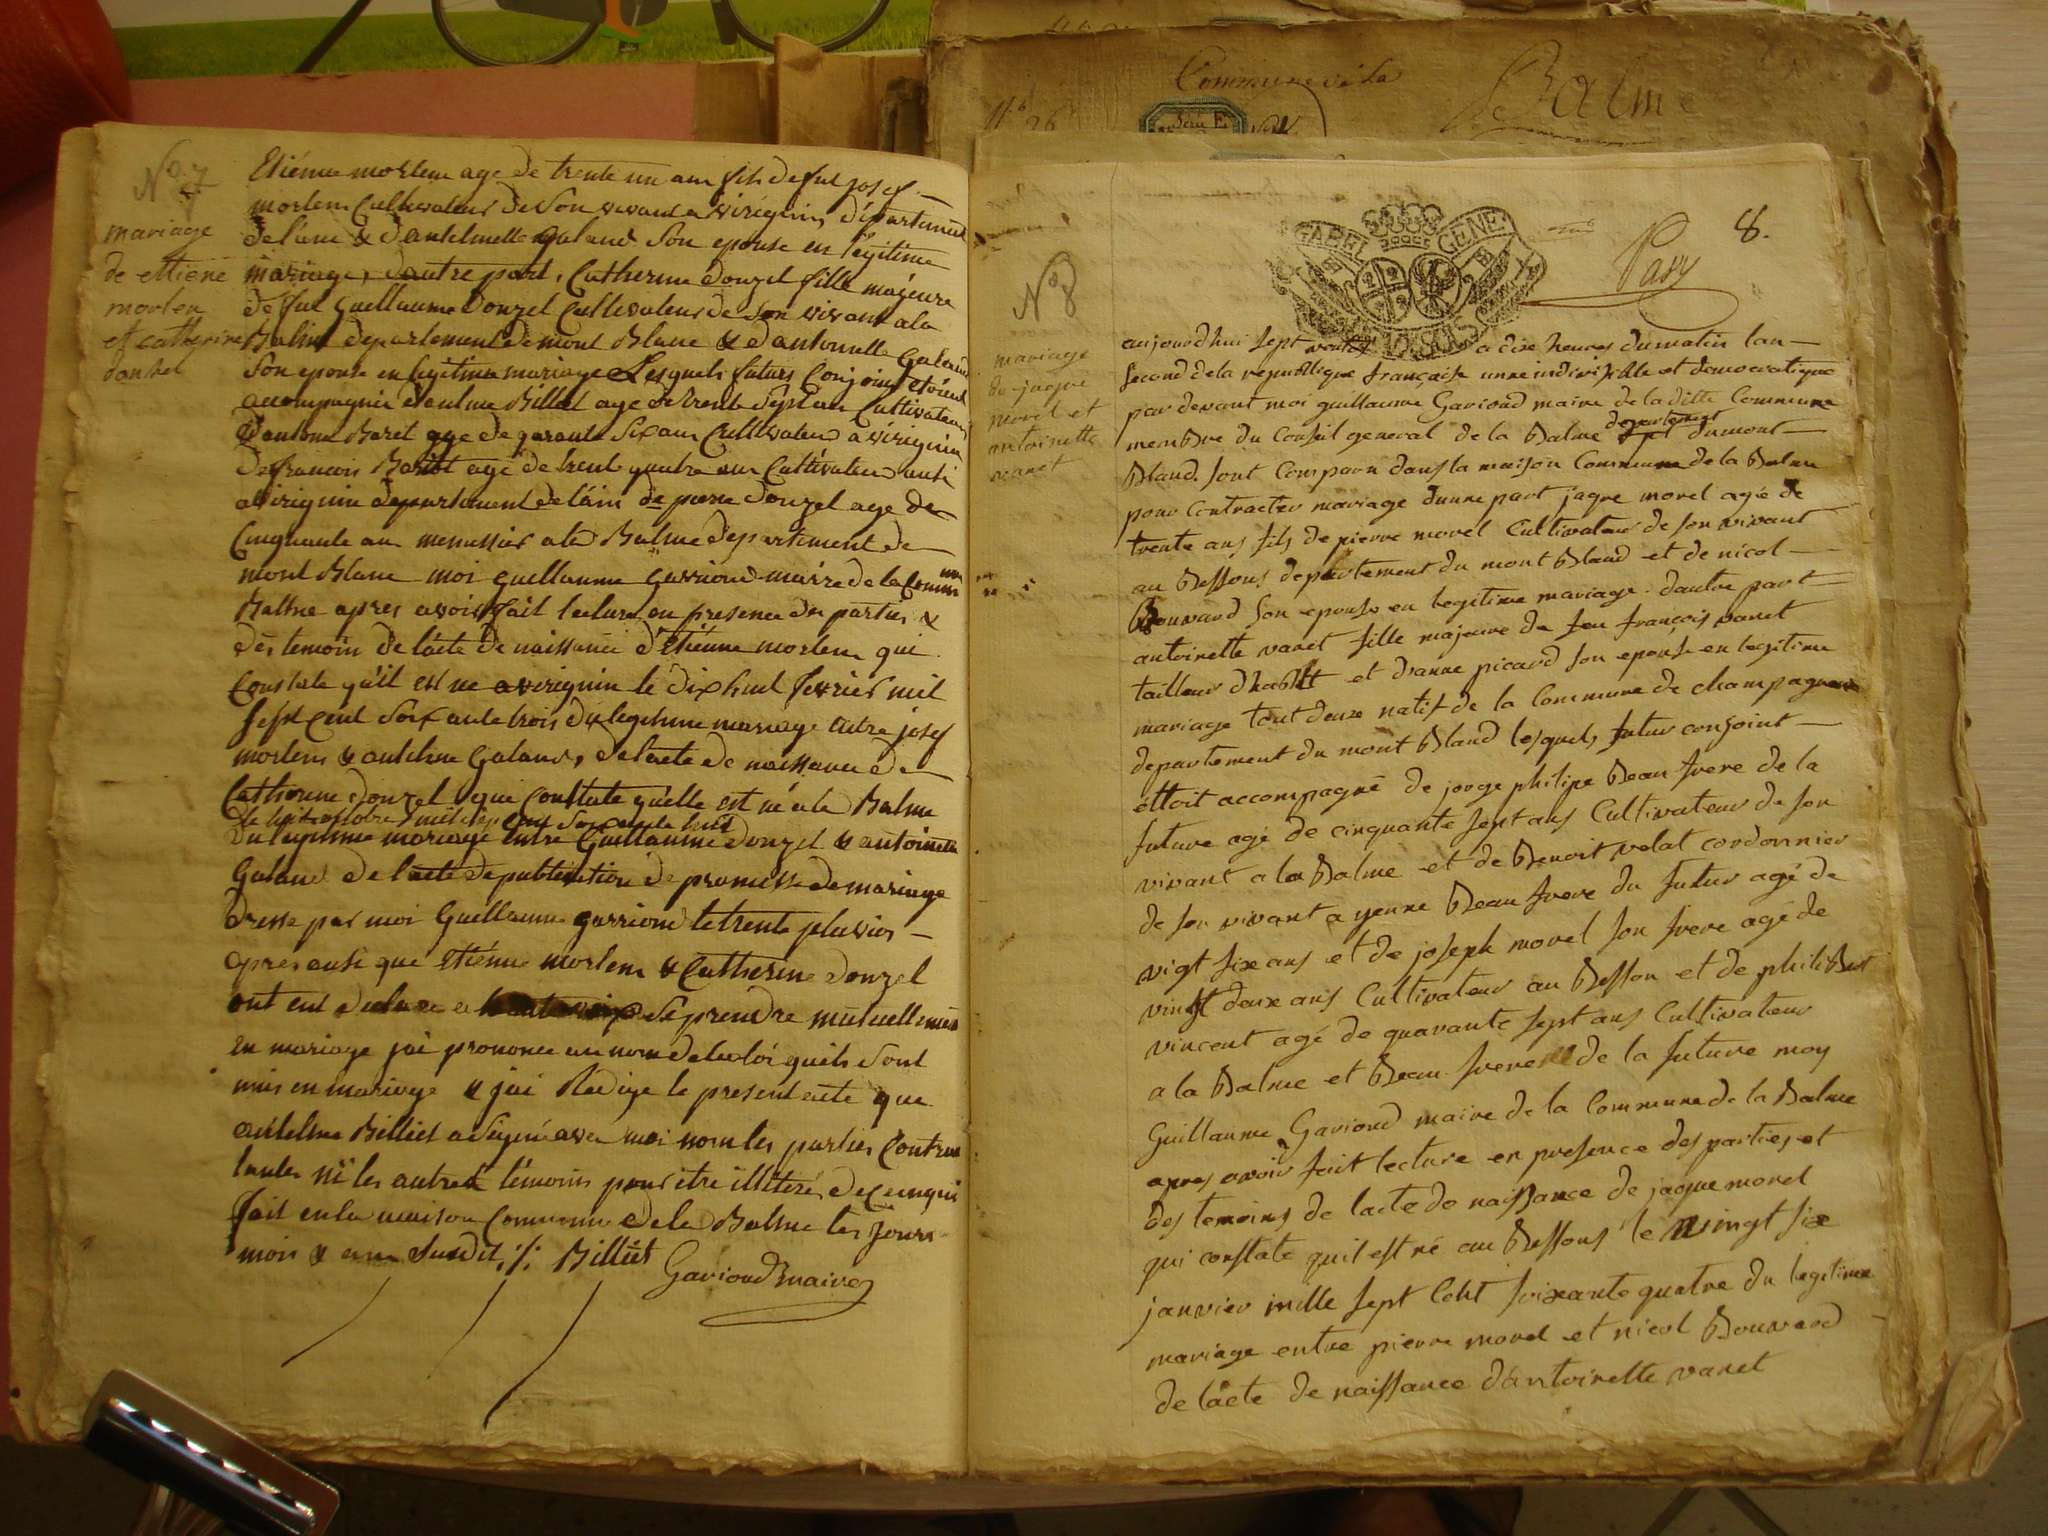 Commune de la
Balme
N.º 26
Série E.
Nº 7
mariage
de ettiene
morlen
et catherine
donzel
Etiénne morlem age de trente un am fils de fut josef
morlem Cultivateur de Son vivant a virignin, département
de l'ain & d'antelmette galand Son epouse en legitime
mariage, d'autre part, Catherine donzel fille majeure
de fut guellaume donzel Cultivateur de Son vivant a la
Balme departement de mont Blanc & d'antonnette Galand
Son epouse en legitime mariage Lesquels futurs Conjoins étoient
accompagnié d'antelme Billiet age de trente Sept an Cultivateur
d'antoine Baret age de garante Six an Cultivateur a virignin
de francois Baret agé de trent quatre an Cultivateur ausi
a virignin departement de l'ain de pierre donzel age de
Cinquante an menussier a la Balme departement de
mont Blanc moi guellaume garrioud maire de la Comm
Balme apres avoir fait lecture en presence des parties &
des temoin de l'acte de naissance d'Etiénne morlem qui
Constate qu'il est ne a virignin le dix huit fevrier mil
Sept cent Soixante trois du legitime mariage entre josef
morlem & antelme Galand, de l'acte de naissance de
Catherine donzel qui Constate qu'elle est né a la Balme
le huit octobre mil sept cent Soixante huit
du legitime mariage entre Guillaume donzel & antoinette
Galand de l'acte de publication de promesse de mariage
dresse par moi Guellaume garrioud le trente pluvios
apres ausi que Etiénne morlem & Catherine donzel
ont eut declare a haute voix Se prendre mutuellement
en mariage jai prononce au nom de la loi quils Sont
unis en mariage & jai Redige le present acte que
antelme Billiet a Signé avec moi non les parties Contrac
tantes ni les autres témoins pour etre illiteré de ce enquis
fait en la maison Commune de la Balme les jours
mois & an Susdit ./. Billiet
Garioud maire
8.
GABEL GENE
Pavy
Nº 8
mariage
de jaque
morel et
antoinette
vanet
aujourdhui sept ventos a dixe heures du matin lan
second de la republique française unne indivisible et democratique
par devant moi guillaume Garioud maire de la ditte Commune
membre du Conseil general de la Balme departement du mont
Bland. sont Comparu dans la maison Commune de la Balme
pour Contracter mariage dunne part jaque morel agé de
trente ans fils de pierre morel Cultivateur de son vivant
au Bessons departement du mont Bland et de nicol
Bouvard son epouse en legitime mariage. dautre part
antoinette vanet fille majeure de feu françois vanet
tailleur dhabit et d'anne picard son epouse en legitime
mariage tout deux natif de la Commune de champagneux
departement du mont Bland lesquels futur conjoint
ettoit accompagné de jorge philipe Beau frere de la
future agé de cinquante sept ans Cultivateur de son
vivant a la Balme et de Benoit velat cordonnier
de son vivant a yenne Beau frere du futur agé de
vigt sixe ans et de joseph morel son frere agé de
vingt deux ans Cultivateur au Besson et de philibert
vincent agé de quarante sept ans Cultivateur
a la Balme et Beau frere de la future moy
Guillaume Garioud maire de la Commune de la Balme
apres avoir fait lecture en presence des parties et
des temoins de lacte de naissance de jaque morel
qui constate quil est né au Bessons le vingt six
janvier mille sept cent soixante quatre du legitime
mariage entre pierre morel et nicol Bouvard
de lacte de naissance dantoinette vanet